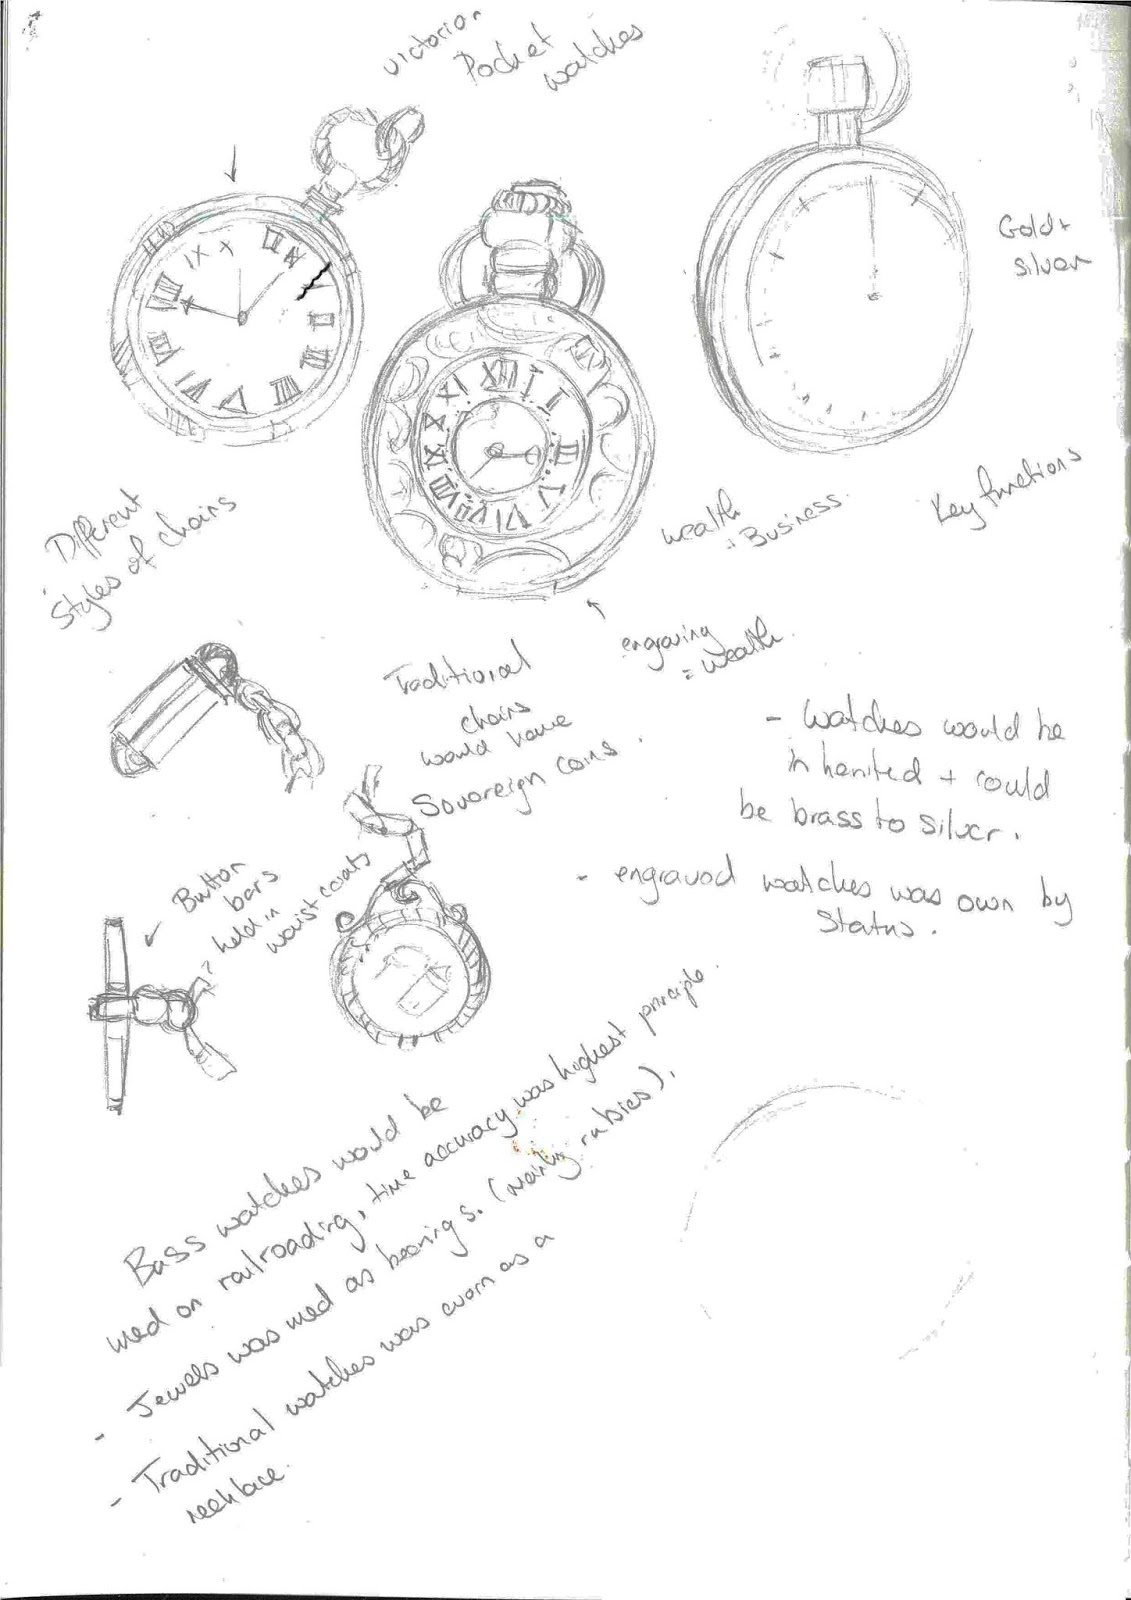 victorian
Pocket
watches
Gold +
silver
Key functions
Different
styles of chains
wealth
= Business
engraving
= wealth
Traditional
chains
would have
Sovereign coins.
- Watches would be
inherited + could
be brass to silver.
- engraved watches was own by
Status.
Button
bars
held in
waistcoats
Bass watches would be
used on railroading, time accuracy was highest principle.
- Jewels was used as bearings. (mainly rubies).
- Traditional watches was worn as a
necklace.
XII
I
II
III
V
VI
VII
VIII
IX
X
XI